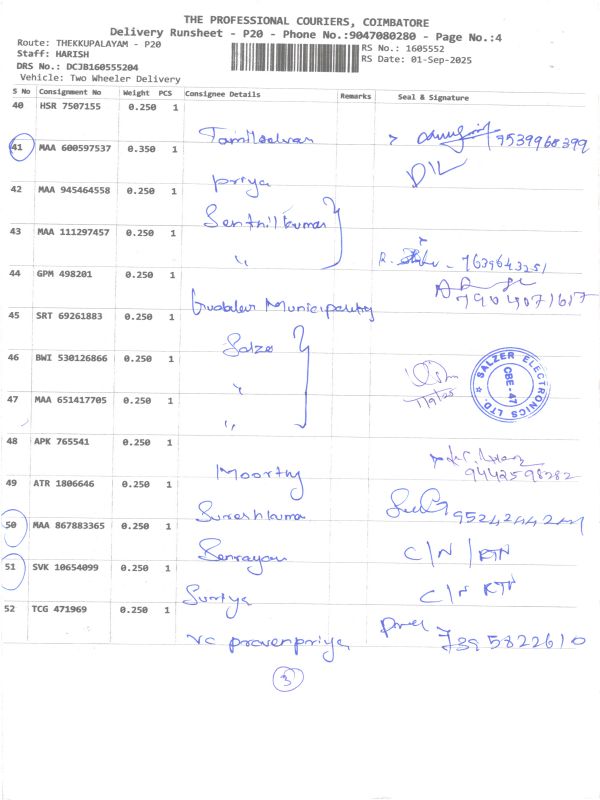 THE PROFESSIONAL COURIERS, COIMBATORE
Delivery Runsheet - P20 - Phone No.:9047080280 - Page No.:4
Route: THEKKUPALAYAM - P20
RS No.: 1605552
Staff: HARISH
RS Date: 01-Sep-2025
DRS No.: DCJB160555204
Vehicle: Two Wheeler Delivery
S No Consignment No Weight PCS Consignee Details Remarks Seal & Signature
40 HSR 7507155 0.250 1
Tamilselvan 9539968399
41 MAA 600597537 0.350 1
priya D/L
42 MAA 945464558 0.250 1
Senthilkumar
43 MAA 111297457 0.250 1
〃 R. 7639643251
44 GPM 498201 0.250 1
7904071617
Gudalur Municipality
45 SRT 69261883 0.250 1
Salzer
46 BWI 530126866 0.250 1
〃 1/9/25
SALZER ELECTRONICS LTD.
CBE-47
47 MAA 651417705 0.250 1
〃
48 APK 765541 0.250 1
Moorthy 9442598282
49 ATR 1806646 0.250 1
Sureshkumar
50 MAA 867883365 0.250 1
Senrayan C/N / RTN
51 SVK 10654099 0.250 1
Suriya C/N RTN
52 TCG 471969 0.250 1
VC pravenpriya 7395822610
3